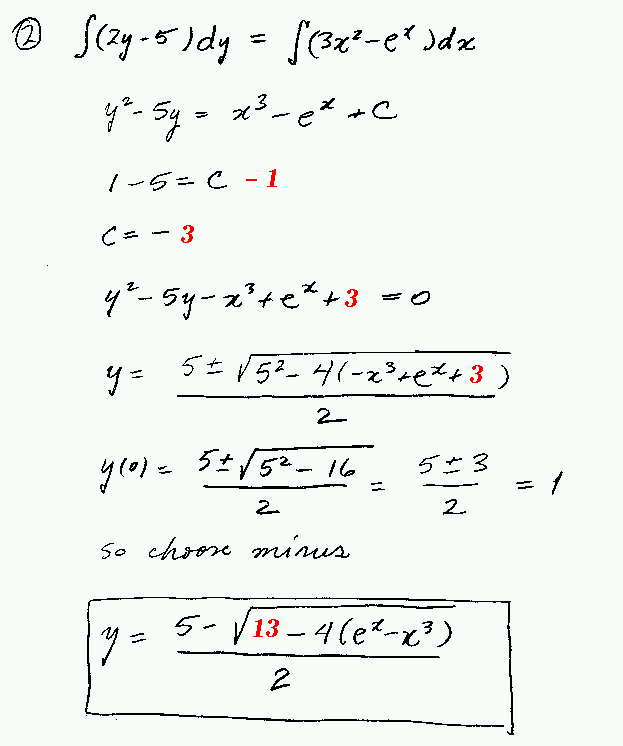 ② ∫(2y-5)dy = ∫(3x²-eˣ)dx
y²-5y = x³-eˣ+C
1-5 = C -1
C = -3
y²-5y-x³+eˣ+3 = 0
y = (5±√(5²-4(-x³+eˣ+3)))/2
y(0) = (5±√(5²-16))/2 = (5±3)/2 = 1
so choose minus
y = (5-√(13-4(eˣ-x³)))/2